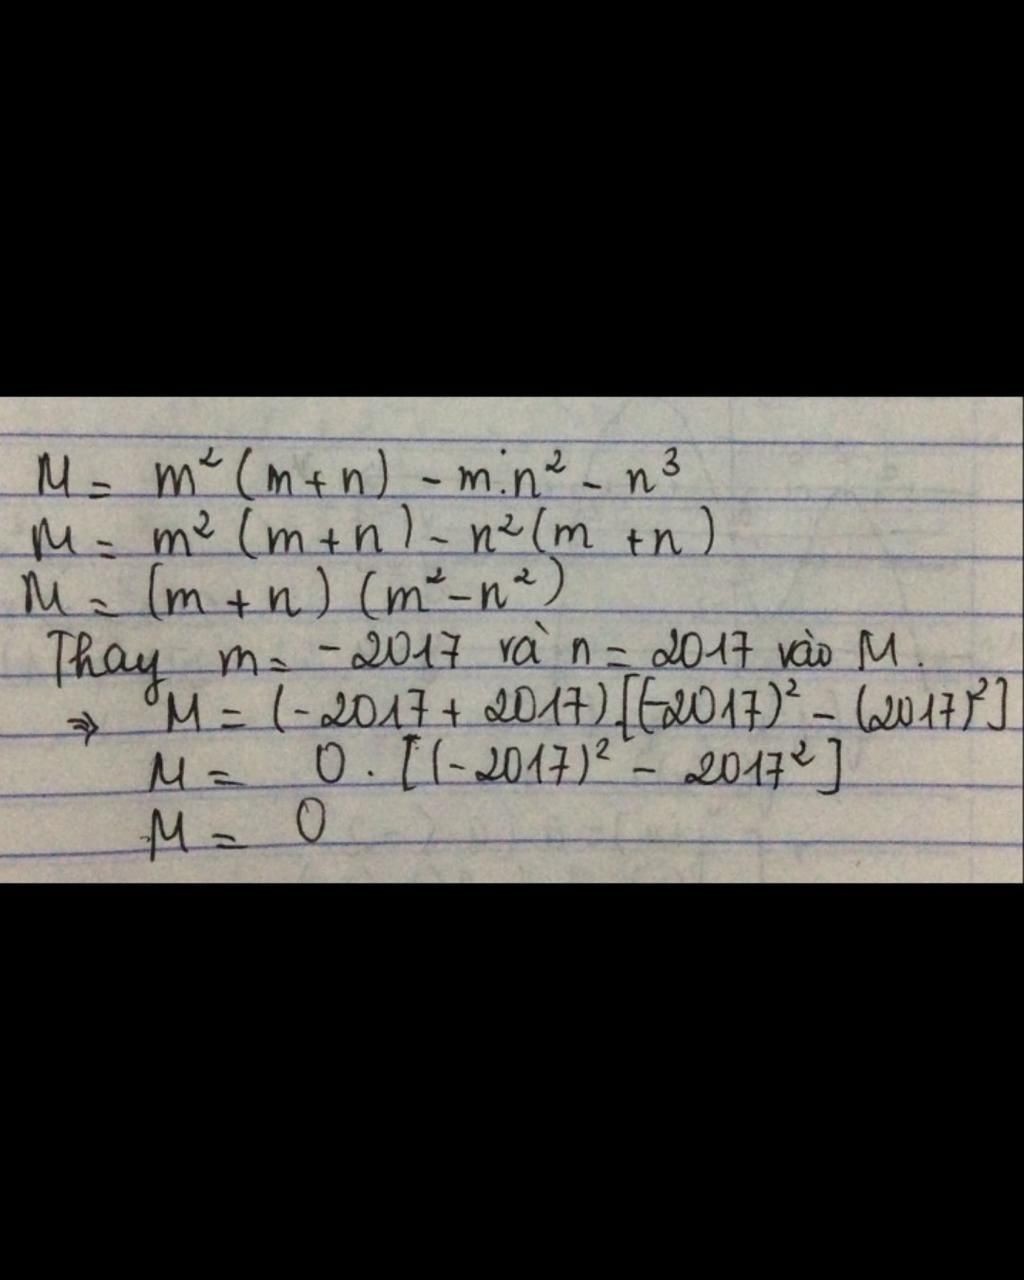 M = m²(m+n) - m.n² - n³
M = m²(m+n) - n²(m +n)
M = (m+n) (m²-n²)
Thay m = -2017 và n = 2017 vào M.
⇒ M = (-2017+2017).[(-2017)² - (2017)²]
M = 0 . [(-2017)² - 2017²]
M = 0